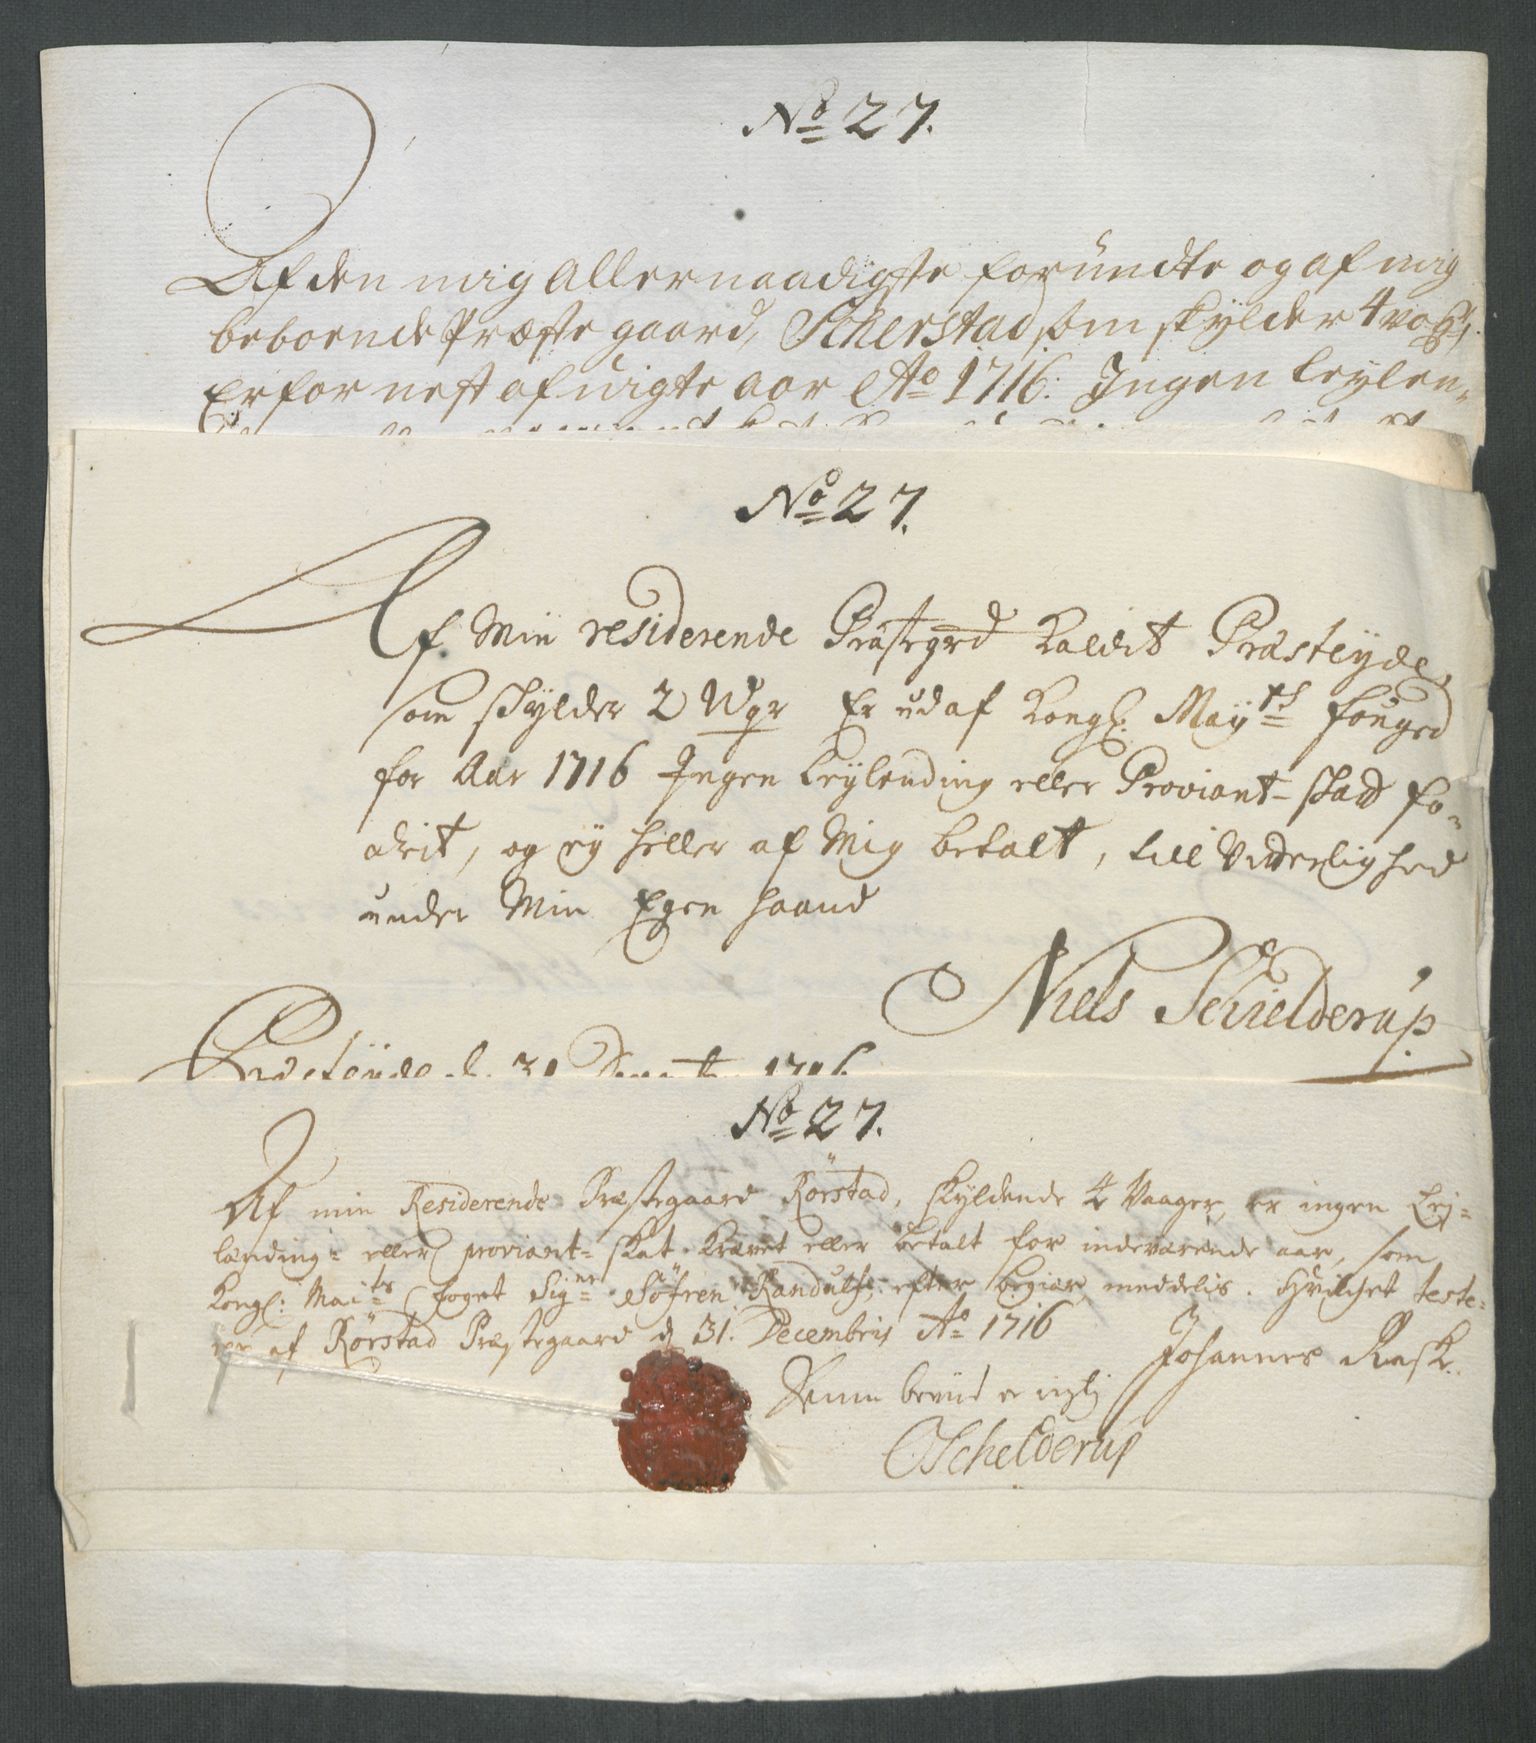 No 27.
Af den mig Allernaadigste forundte og af mig
beboende Præste gaard, Skierstad som skylder 4 vog,
Er for nest afvigte aar Ao 1716: Ingen Leylen-
No 27.
Af Min residerende Præstegrd kaldet Præsteyde,
som skylder 2 Wgr Er udaf Kongl. Mayts fouged
for Aar 1716 Ingen Leylending eller Proviant-skatt fo-
dret, og ey heller af Mig betalt, till Vitterlighed
under Min Egen haand
Niels Schielderup
Præsteyde d. 31 Decemb. 1716
No 27.
Af min Residerende Præstegaard Rørstad, skyldende 4 Vaager, er ingen Ley=
lænding= eller proviant= skat krævet eller betalt for indeværende aar, som
Kongl: Maits foget Signr Søfren Randulf efter begiær meddelis. Hvilchet teste=
rer af Rørstad Præstegaard d 31. Decembris Ao 1716
Johannes Rask.
OSchelderup